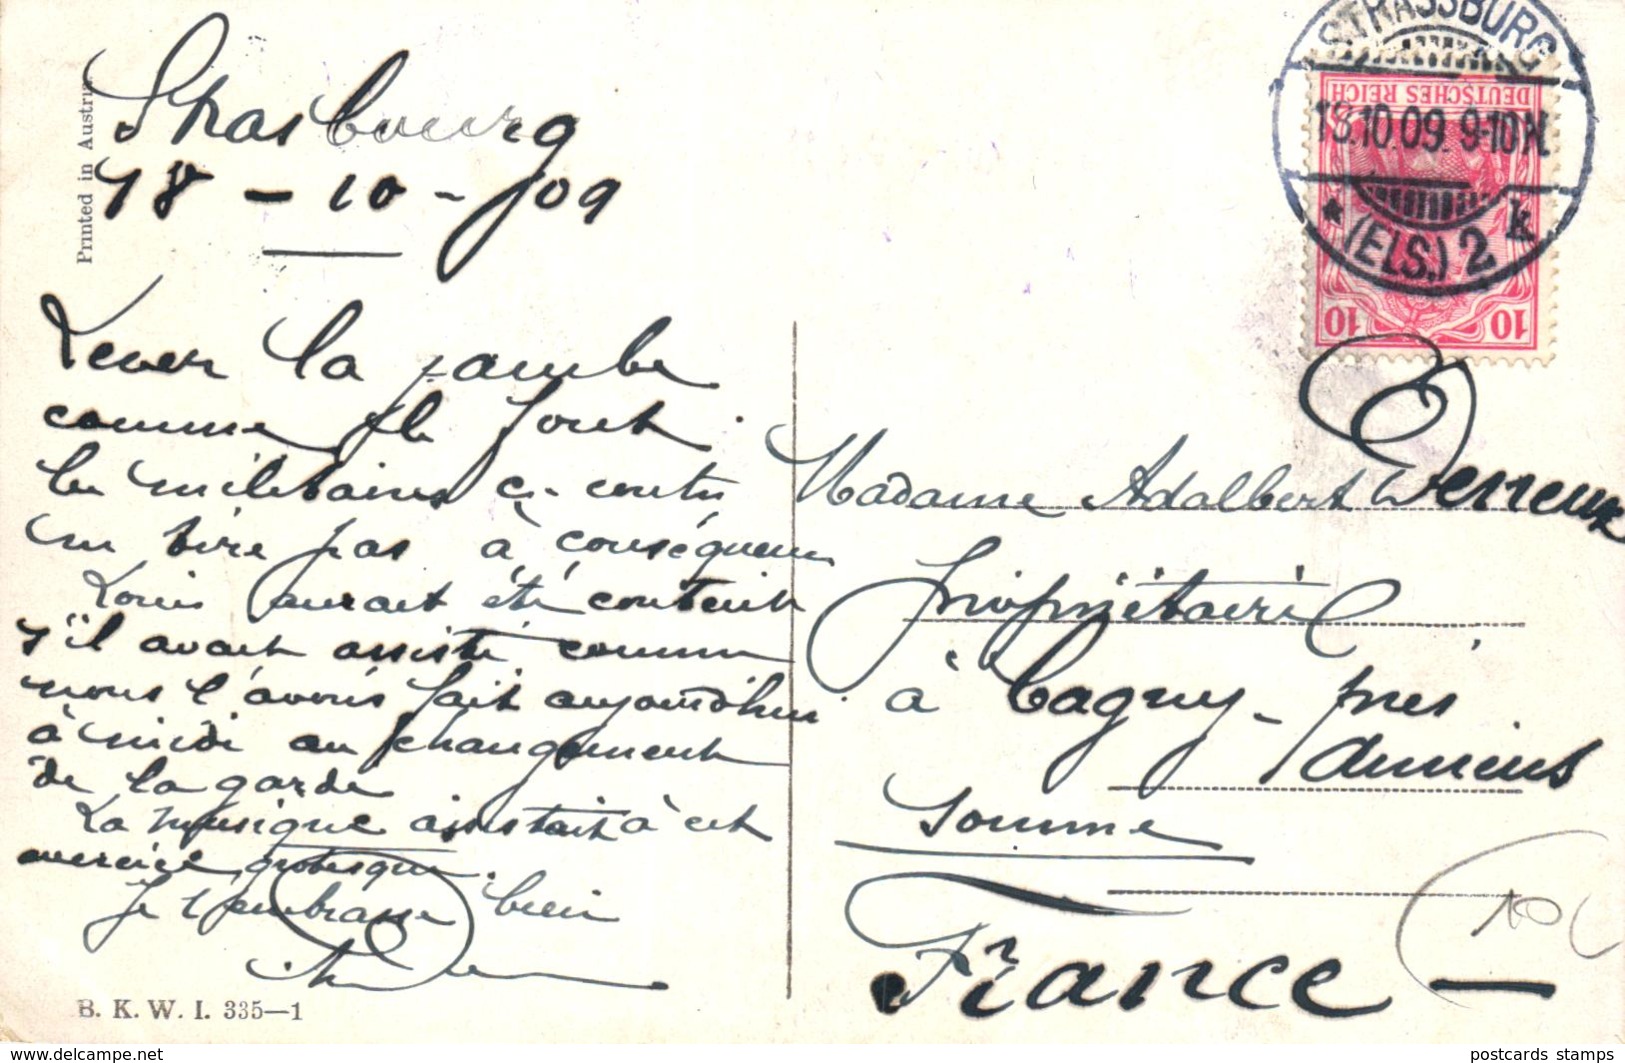 Printed in Austria
Strasbourg
18 - 10 - 09
Lever la jambe
comme le font
les militaires ci-contre
ne tire pas à conséquence
Louis aurait été content
s'il avait assisté comme
nous l'avons fait aujourd'hui
à midi au changement
de la garde
La musique assistait à cet
exercice grotesque.
Je t'embrasse bien
B. K. W. I. 335—1
STRASSBURG
18.10.09. 9-10 N.
* (ELS.) 2 k
DEUTSCHES REICH
10 10
Madame Adalbert
Propriétaire
à Cagny - près
Amiens
Somme
France
www.delcampe.net
postcards stamps